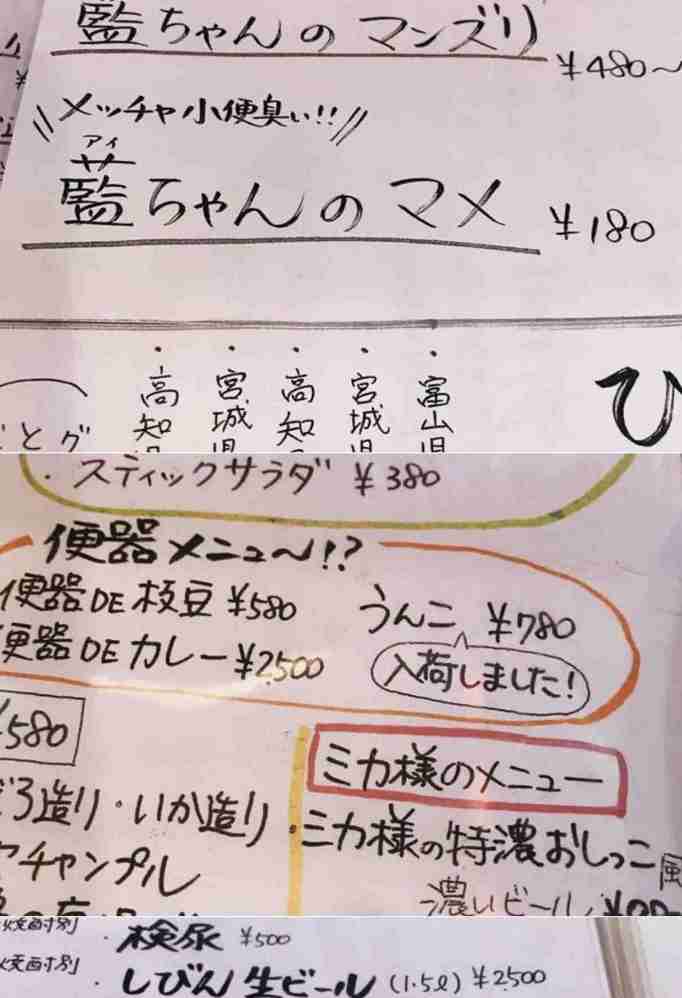 藍ちゃんのマンズリ ¥480〜
メッチャ小便臭い!!
アイ
藍ちゃんのマメ ¥180
・高知
・宮城県
・高知
・宮城県
・富山県
ひ
・スティックサラダ ¥380
便器メニュ〜!?
便器DE枝豆 ¥580
便器DEカレー ¥2,500
うんこ ¥780
入荷しました!
¥580
ミカ様のメニュー
造り・いか造り
チャンプル
・ミカ様の特濃おしっこ風
濃いビール
・検尿 ¥500
・しびん生ビール (1.5ℓ) ¥2500